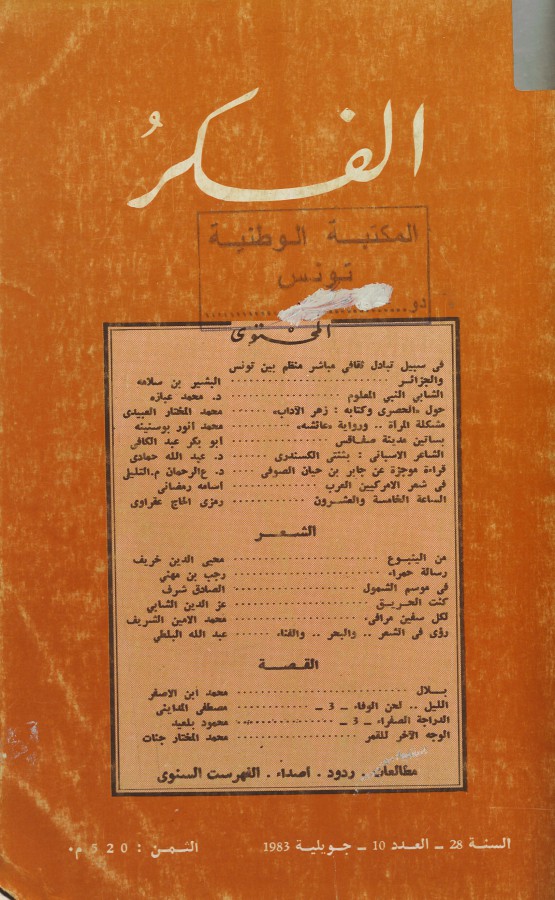 الفكرُ
المكتبة الوطنية
تونس
دو
المحتوى
في سبيل تبادل ثقافي مباشر منظم بين تونس
والجزائر .......... البشير بن سلامه
الشابي النبي المعلوم .......... د. محمد عبازه
حول «الحصرى وكتابه : زهر الآداب» .......... محمد المختار العبيدي
مشكلة المرأة .. ورواية «عائشه» .......... محمد أنور بوسنينه
بساتين مدينة صفاقس .......... ابو بكر عبد الكافي
الشاعر الاسباني : بثنتي الكسندرى .......... د. عبد الله حمادي
قراءة موجزة عن جابر بن حيان الصوفي .......... د. ع.الرحمان م.التليلي
في شعر الامركيين العرب .......... اسامه رمضاني
الساعة الخامسة والعشرون .......... رمزى الحاج عقراوى
الشعر
من الينبوع .......... محيى الدين خريف
رسالة حمراء .......... رجب بن مهني
في موسم الشمول .......... الصادق شرف
كنت الحريق .......... عز الدين الشابي
لكل سفين مرافىء .......... محمد الامين الشريف
رؤى في الشعر .. والبحر .. والفناء .......... عبد الله البلطي
القصة
بلال .......... محمد ابن الاصفر
الليل .. لحن الوفاء ـ 3 ـ .......... مصطفى المدايني
الدراجة الصفراء ـ 3 ـ .......... محمود بلعيد
الوجه الآخر للقمر .......... محمد المختار جنات
مطالعات . ردود . أصداء . الفهرست السنوى
السنة 28 ـ العدد 10 ـ جويلية 1983
الثمن : 520 م.